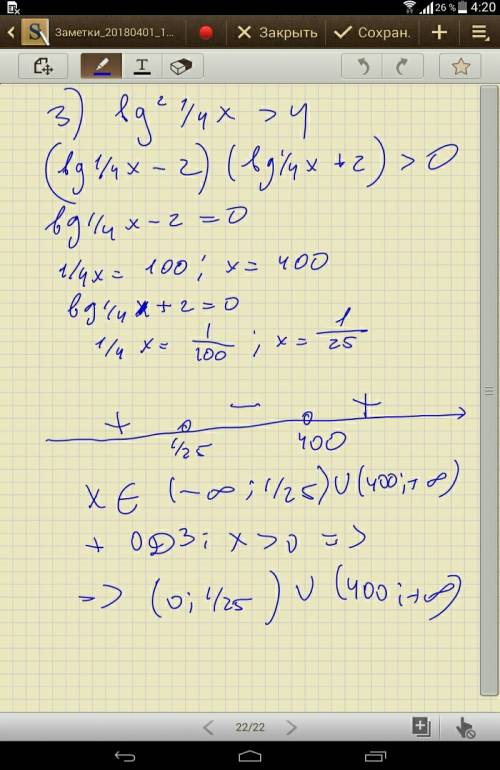 26 % 4:20
Заметки_20180401_1... Закрыть Сохран.
T
3) lg² 1/4x > 4
(lg 1/4x - 2) (lg 1/4x + 2) > 0
lg 1/4x - 2 = 0
1/4x = 100 ; x = 400
lg 1/4x + 2 = 0
1/4 x = 1/100 ; x = 1/25
+ - +
1/25 400
x ∈ (-∞ ; 1/25) ∪ (400 ; +∞)
+ ОДЗ : x > 0 =>
=> (0 ; 1/25) ∪ (400 ; +∞)
22/22